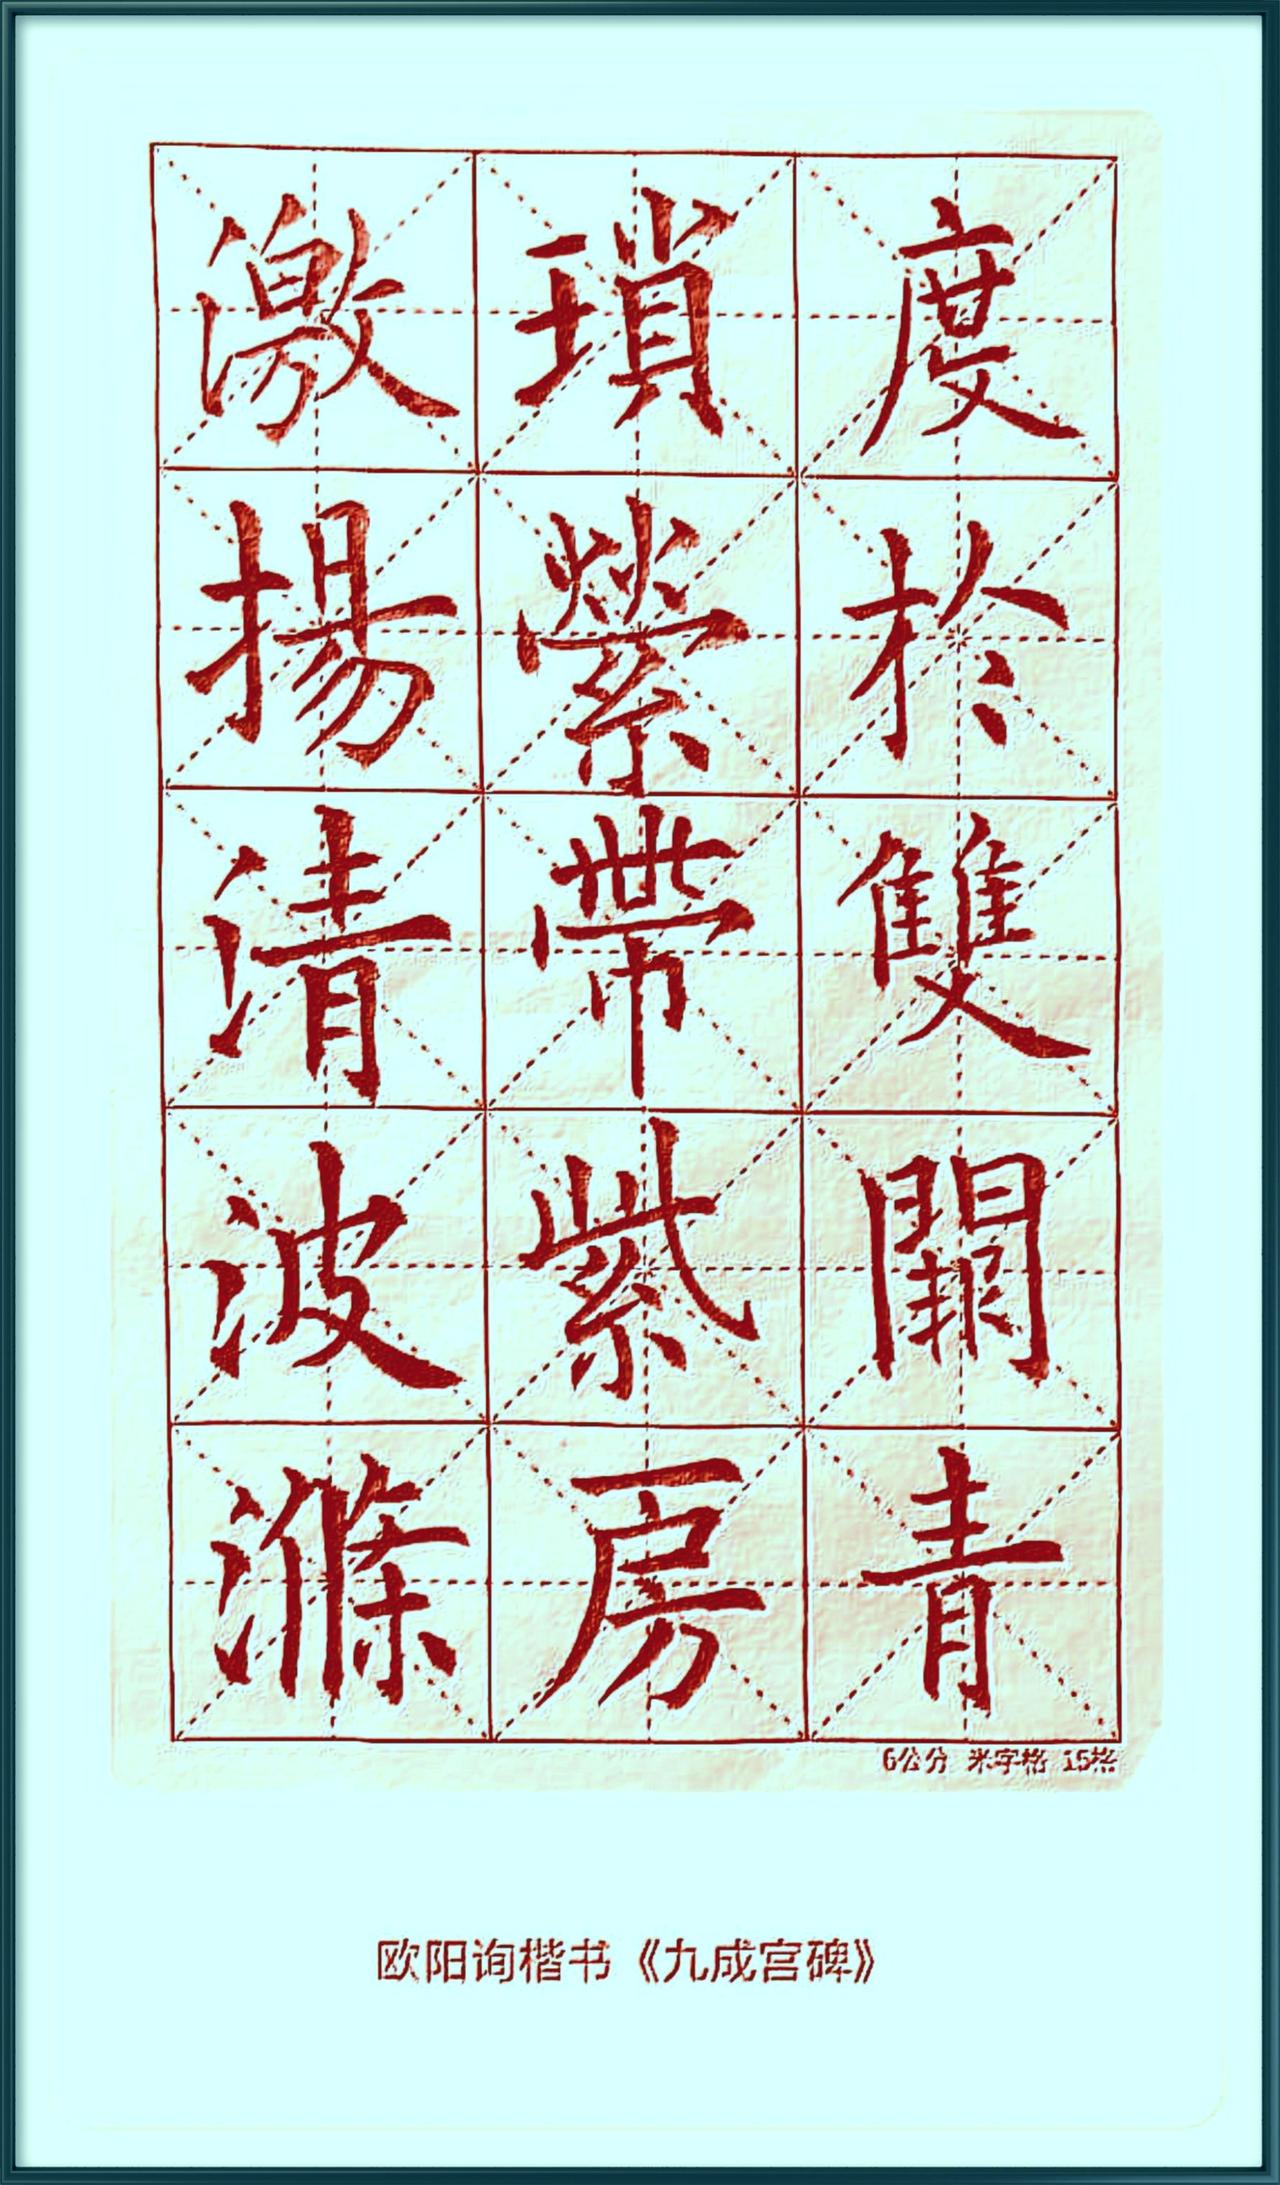 度於雙闕青
瑣縈帶紫房
激揚清波滌
6公分 米字格 15格
欧阳询楷书《九成宫碑》